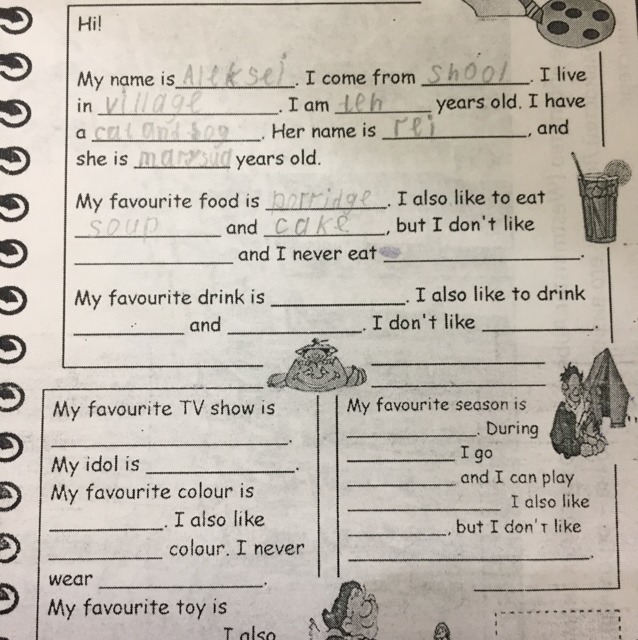 Hi!
My name is Aleksei. I come from shool. I live
in village. I am teh years old. I have
a cat and gog. Her name is rei, and
she is years old.
My favourite food is porridge. I also like to eat
soup and cake, but I don't like
and I never eat .
My favourite drink is . I also like to drink
and . I don't like .
My favourite TV show is
.
My idol is .
My favourite colour is
. I also like
colour. I never
wear .
My favourite toy is
I also
My favourite season is
. During
I go
and I can play
I also like
, but I don't like
.